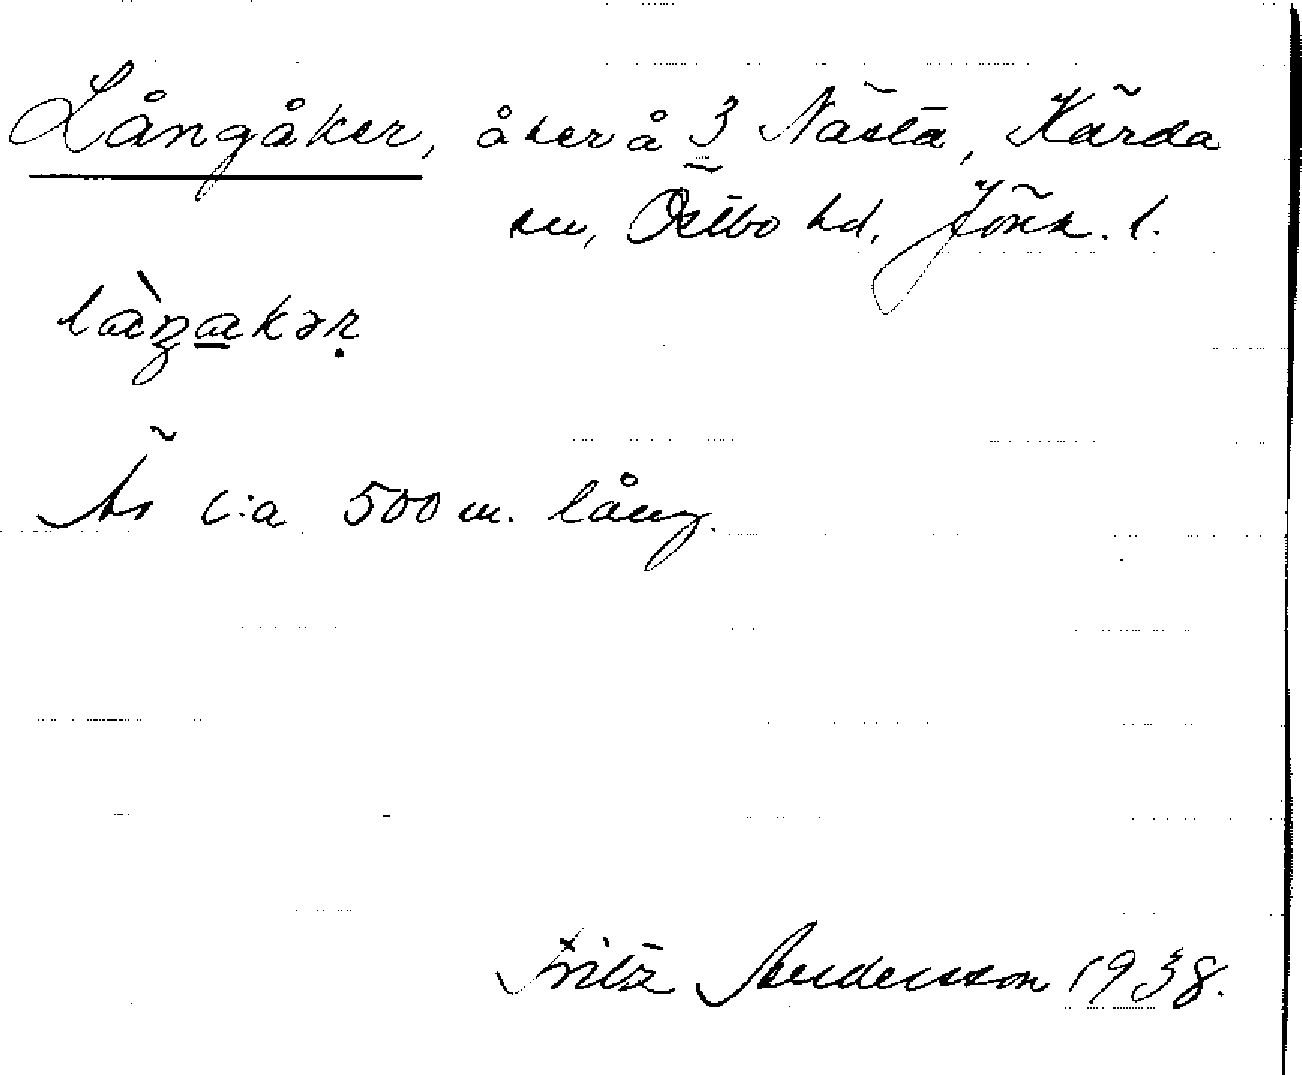 Långåker, åker å 3 Nästa, Kärda
sn, Östbo hd, Jönk. l.
làŋakər
Är c:a 500 m. lång.
Fritz Andersson 1938.